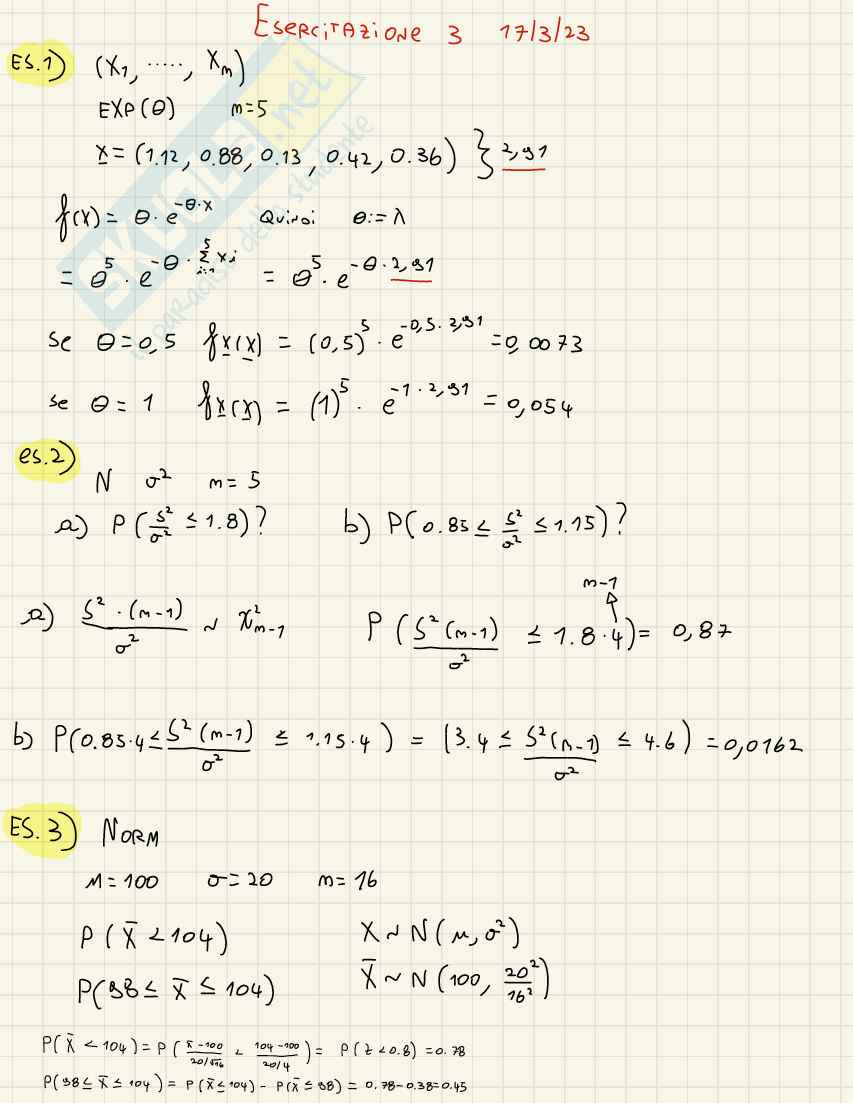 Esercitazione 3 17/3/23
ES.1) (X₁, ....., Xₙ)
EXP(θ) n=5
x = (1.12, 0.88, 0.13, 0.42, 0.36) } 2,91
f(x) = θ · e^(-θ·x) Quindi θ:=λ
= θ⁵ · e^(-θ · Σ_(i=1)^5 xᵢ) = θ⁵ · e^(-θ · 2,91)
se θ=0,5 f_X(x) = (0,5)⁵ · e^(-0,5 · 2,91) = 0,0073
se θ = 1 f_X(x) = (1)⁵ · e^(-1 · 2,91) = 0,054
es.2)
N σ² n = 5
a) P(S²/σ² ≤ 1.8)? b) P(0.85 ≤ S²/σ² ≤ 1.15)?
n-1
a) S² · (n-1)/σ² ~ χ²ₙ₋₁ P(S²(n-1)/σ² ≤ 1.8 · 4) = 0,87
b) P(0.85·4 ≤ S²(n-1)/σ² ≤ 1.15·4) = (3.4 ≤ S²(n-1)/σ² ≤ 4.6) = 0,0162
ES.3) NORM
μ=100 σ=20 n=16
P(X̄ < 104) X ~ N(μ, σ²)
P(98 ≤ X̄ ≤ 104) X̄ ~ N(100, 20²/16²)
P(X̄ < 104) = P(x̄-100/20/√16 < 104-100/20/4) = P(z < 0.8) = 0.78
P(98 ≤ X̄ ≤ 104) = P(X̄ ≤ 104) - P(X̄ ≤ 98) = 0.78-0.38=0.45
SKUOLA.net
il paradiso dello studente